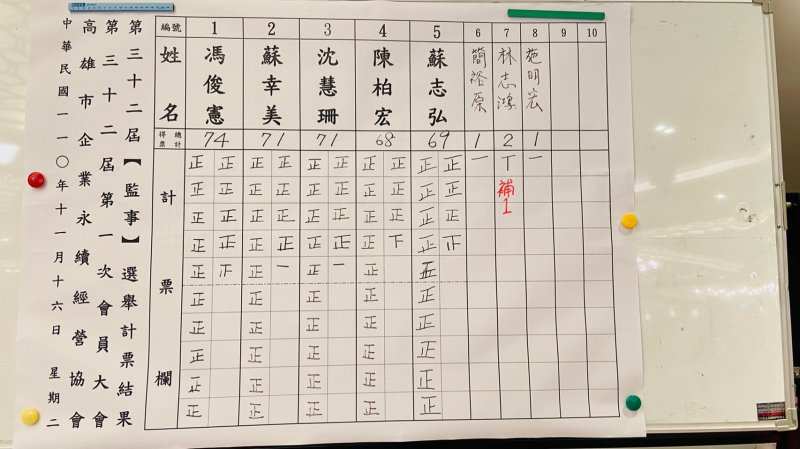 第三十二屆【監事】選舉計票結果
高雄市企業永續經營協會
第三十二屆第一次會員大會
中華民國一一〇年十一月十六日 星期二
編號 1 2 3 4 5 6 7 8 9 10
姓名 馮俊憲 蘇幸美 沈慧珊 陳柏宏 蘇志弘 簡裕原 林志鴻 施明宏
得票總計 74 71 71 68 69 1 2 1
計票欄
正 正 正 正 正 正 正 正 正 正 一 丅 一
正 正 正 正 正 正 正 正 正 正 補1
正 正 正 正 正 正 正 正 正 正
正 正 正 正 正 正 正 下 正 正
正 正 一 正 一 正 正
正 正 正 正 正
正 正 正 正 正
正 正 正 正 正
正 正 正 正 正
正 正 正 正 正